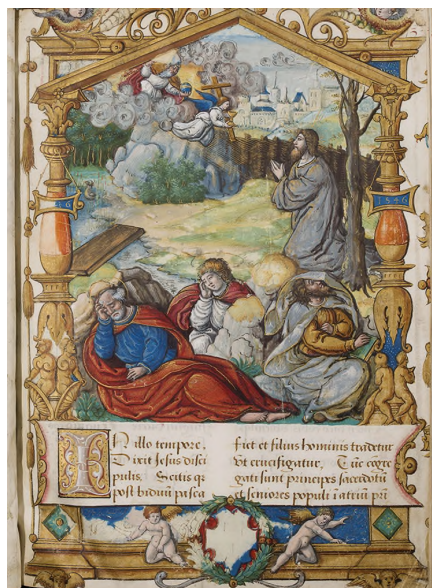 IN illo tempore.
Dixit Jesus disci
pulis. Scitis q
post biduũ pasca
fiet et filius hominis tradetur
vt crucifigatur, Tũc cõgre
gati sunt principes sacerdotũ
et seniores populi ĩ atriũ prĩ
1546